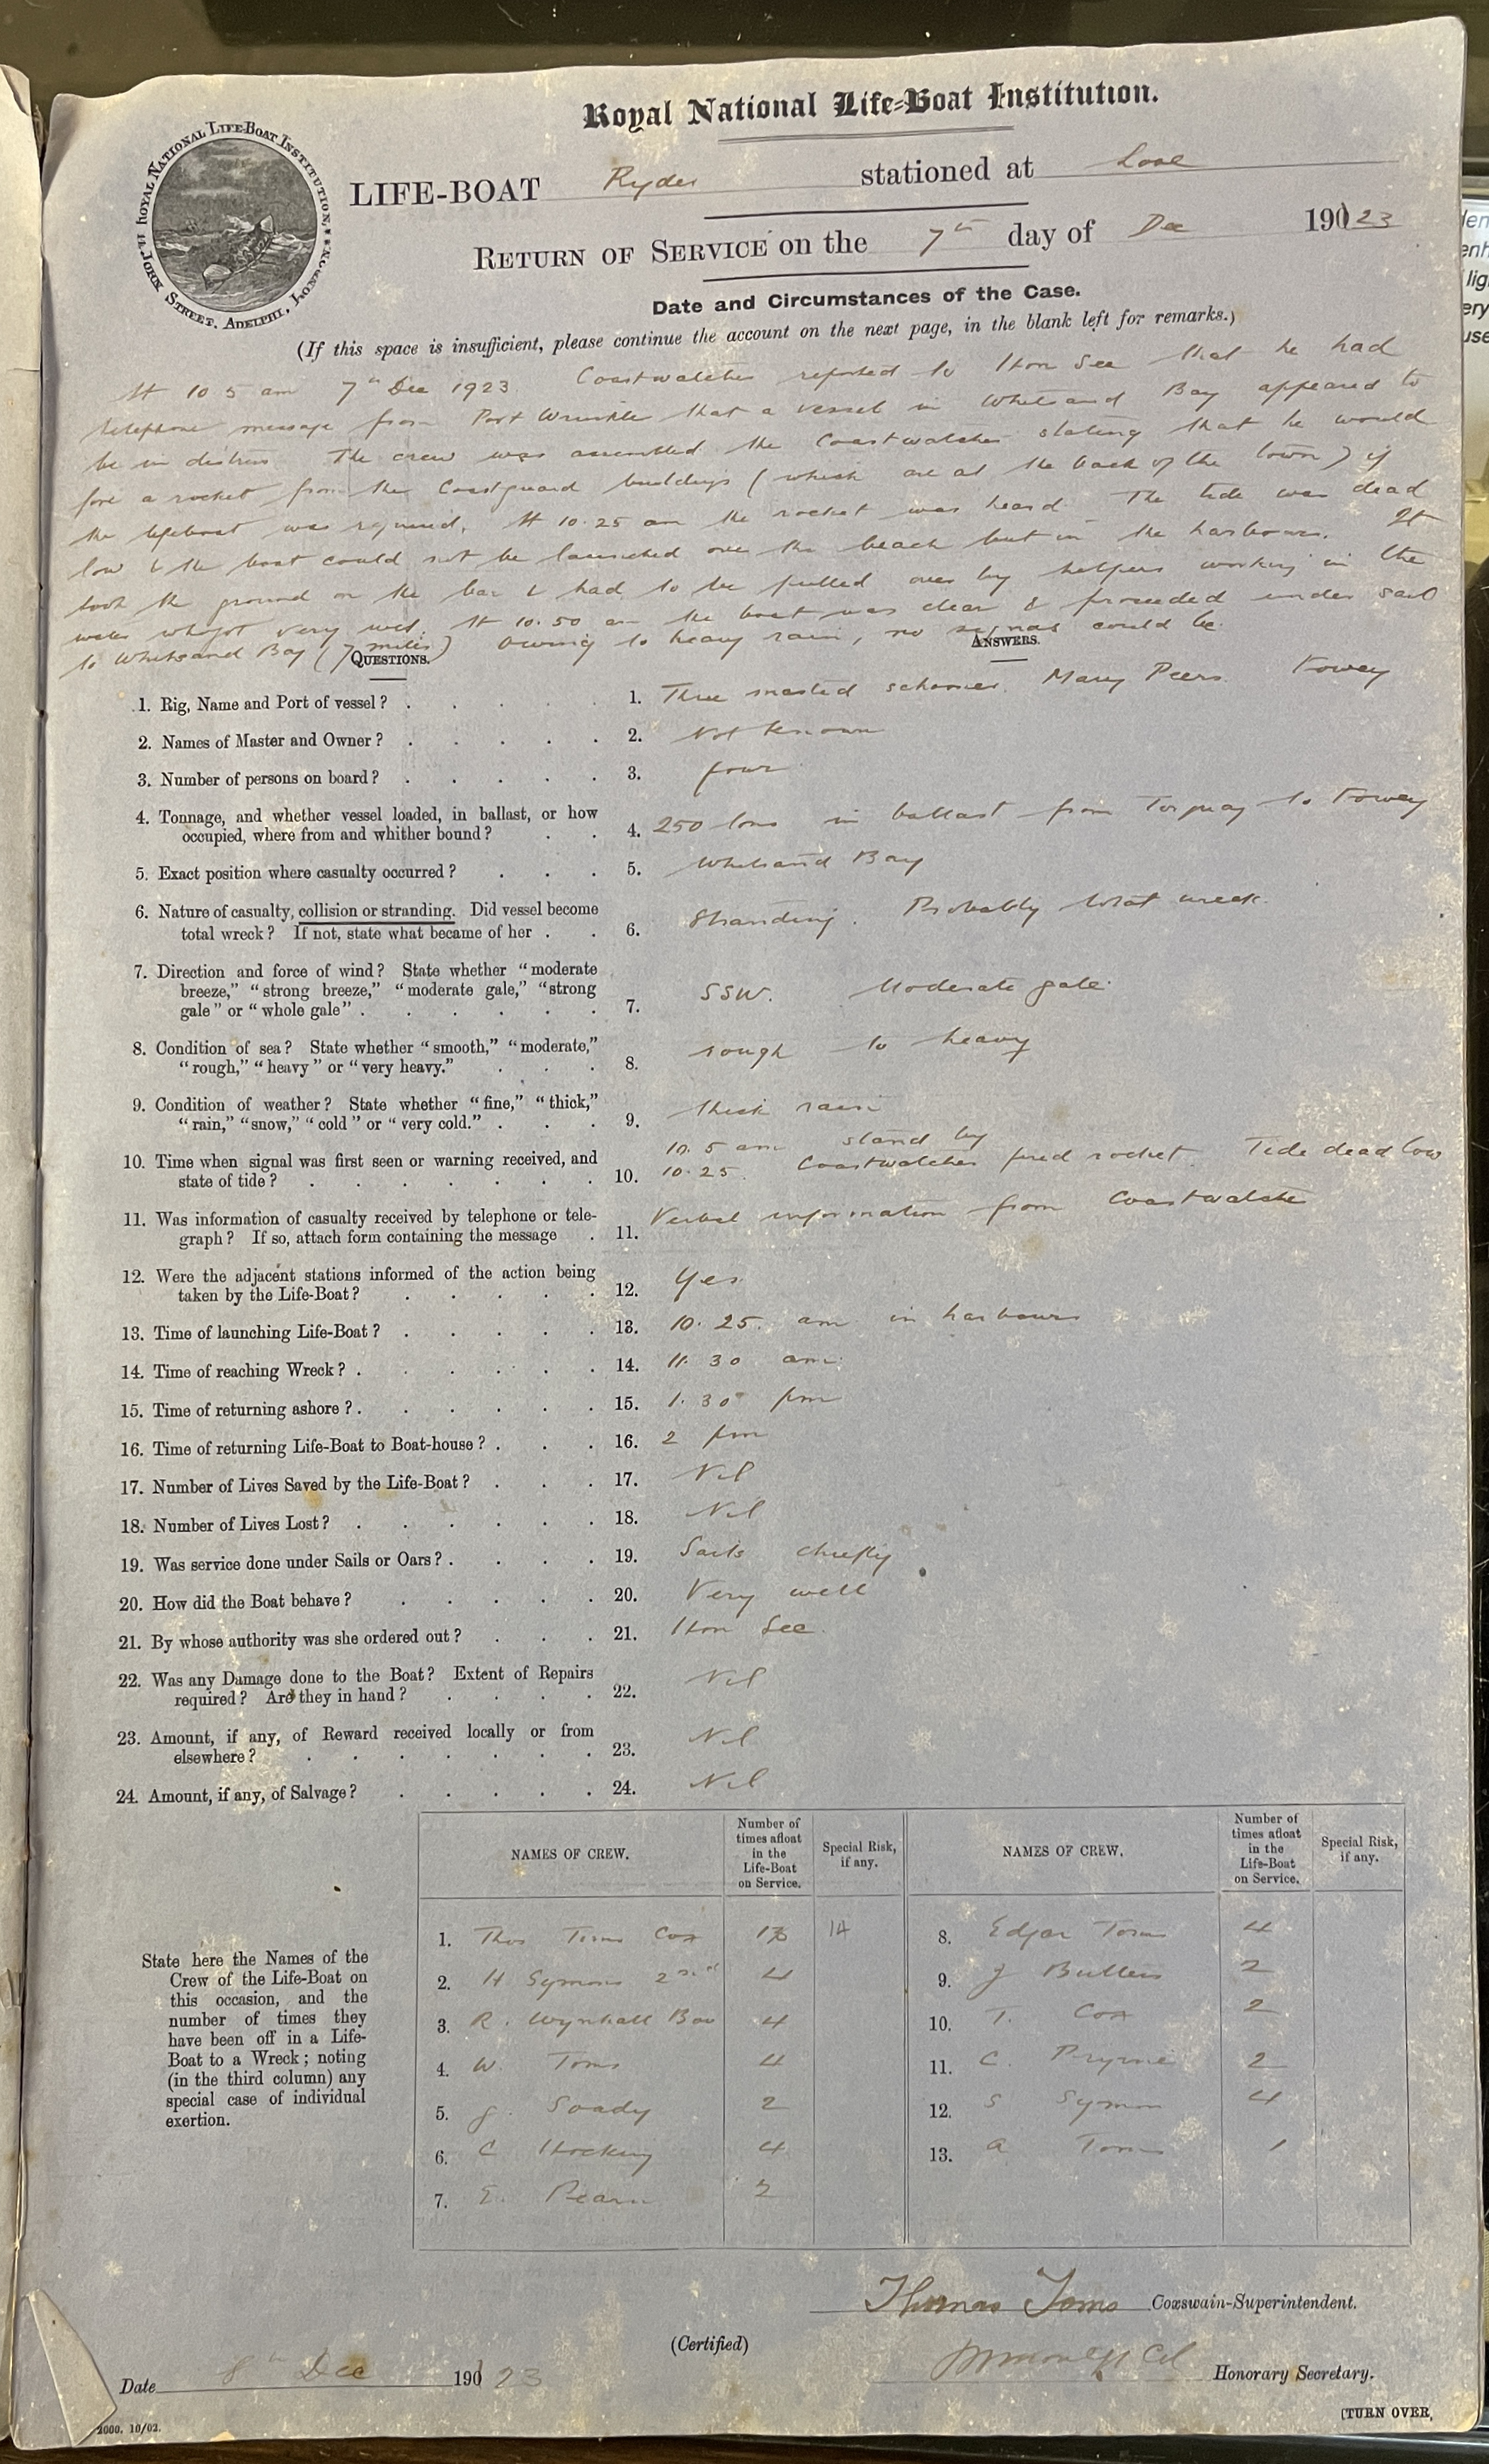 Royal National Life-Boat Institution.
ROYAL NATIONAL LIFE-BOAT INSTITUTION, 14, JOHN STREET, ADELPHI, LONDON.
LIFE-BOAT Ryder stationed at Looe
RETURN OF SERVICE on the 7th day of Dec 1923
Date and Circumstances of the Case.
(If this space is insufficient, please continue the account on the next page, in the blank left for remarks.)
At 10 5 am 7th Dec 1923. Coastwatcher reported to Hon Sec that he had
telephone message from Port Wrinkle that a vessel in Whitsand Bay appeared to
be in distress The crew was assembled the Coastwatcher stating that he would
fire a rocket from the Coastguard buildings (which are at the back of the town) if
the lifeboat was required. At 10.25 am the rocket was heard. The tide was dead
low & the boat could not be launched over the beach but in the harbour. It
took the ground on the bar & had to be pulled over by helpers working in the
water whist very wet. At 10.50 am the boat was clear & proceeded under sail
to Whitsand Bay (7 miles) Owing to heavy rain, no signas could be
QUESTIONS.
ANSWERS.
1. Rig, Name and Port of vessel? 1. Three masted schooner. Mary Peers. Fowey
2. Names of Master and Owner? 2. Not known
3. Number of persons on board? 3. four
4. Tonnage, and whether vessel loaded, in ballast, or how
occupied, where from and whither bound? 4. 250 tons in ballast from Torquay to Fowey
5. Exact position where casualty occurred? 5. Whitsand Bay
6. Nature of casualty, collision or stranding. Did vessel become
total wreck? If not, state what became of her . 6. Stranding. Probably total wreck.
7. Direction and force of wind? State whether "moderate
breeze," "strong breeze," "moderate gale," "strong
gale" or "whole gale" . 7. SSW. Moderate gale.
8. Condition of sea? State whether "smooth," "moderate,"
"rough," "heavy" or "very heavy." 8. rough to heavy
9. Condition of weather? State whether "fine," "thick,"
"rain," "snow," "cold" or "very cold." . 9. thick rain
10. Time when signal was first seen or warning received, and
state of tide? 10. 10. 5 am stand by
10.25. Coastwatcher fired rocket. Tide dead low
11. Was information of casualty received by telephone or tele-
graph? If so, attach form containing the message . 11. Verbal information from Coastwatcher
12. Were the adjacent stations informed of the action being
taken by the Life-Boat? 12. Yes
13. Time of launching Life-Boat? 13. 10. 25. am in harbour
14. Time of reaching Wreck? . 14. 11. 30 am.
15. Time of returning ashore? . 15. 1. 30 pm
16. Time of returning Life-Boat to Boat-house? . 16. 2 pm
17. Number of Lives Saved by the Life-Boat? 17. Nil
18. Number of Lives Lost? 18. Nil
19. Was service done under Sails or Oars? . 19. Sails chiefly
20. How did the Boat behave? 20. Very well
21. By whose authority was she ordered out? 21. Hon Sec.
22. Was any Damage done to the Boat? Extent of Repairs
required? Are they in hand? 22. Nil
23. Amount, if any, of Reward received locally or from
elsewhere? 23. Nil
24. Amount, if any, of Salvage? 24. Nil
State here the Names of the
Crew of the Life-Boat on
this occasion, and the
number of times they
have been off in a Life-
Boat to a Wreck; noting
(in the third column) any
special case of individual
exertion.
NAMES OF CREW. Number of times afloat in the Life-Boat on Service. Special Risk, if any. NAMES OF CREW. Number of times afloat in the Life-Boat on Service. Special Risk, if any.
1. Thos Toms Cox 14
2. H Symons 2nd 4
3. R. Wynhall Bow 4
4. W. Toms 4
5. J. Soady 2
6. C Hocking 4
7. E. Pearn 2
8. Edgar Toms 4
9. J Butters 2
10. T. Cox 2
11. C. Prynne 2
12. S Symons 4
13. A Toms 1
Thomas Toms Coxswain-Superintendent.
(Certified)
Honorary Secretary.
Date 8th Dec 1923
2000. 10/02.
[TURN OVER.